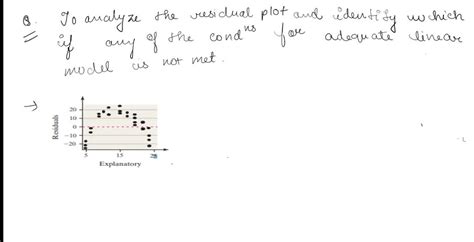 Q. To analyze the residual plot and identify which
if any of the cond^ns for adequate linear
model is not met.
→
20
10
0
-10
-20
Residuals
5 15 25
Explanatory